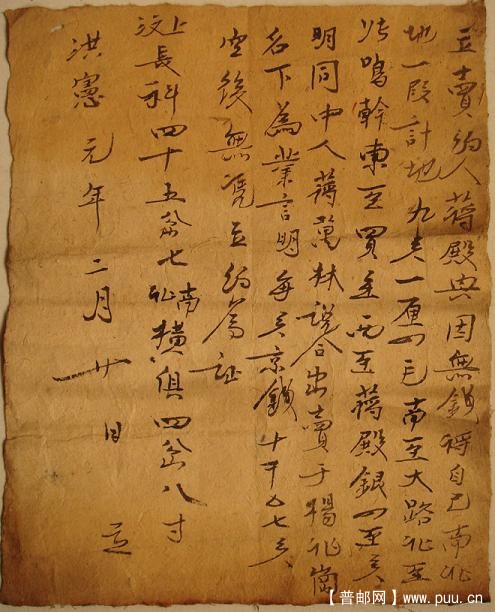 立賣約人蔣殿典因無錢將自己南北
地一段計地九分一厘四毛南至大路北至
鳴幹東至買主西至蔣殿銀四至分
明同中人蔣萬林說合出賣于楊兆崗
名下為業言明每分京錢十千
空後無凭立約為証
長科四十五 七 南 橫俱四 八寸
洪憲元年二月廿日 立
【普邮网】www.puu.cn